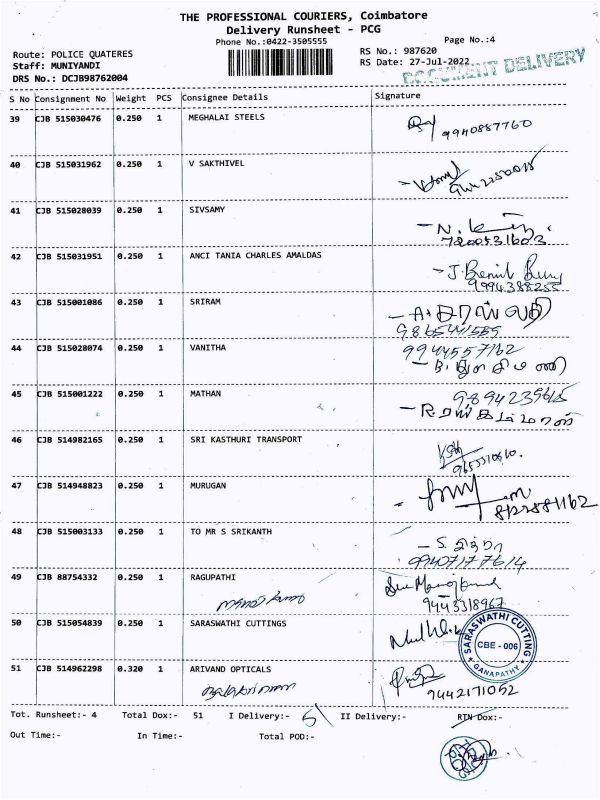 THE PROFESSIONAL COURIERS, Coimbatore
Delivery Runsheet - PCG
Phone No.:0422-3505555
Page No.:4
Route: POLICE QUATERES
RS No.: 987620
Staff: MUNIYANDI
RS Date: 27-Jul-2022
DOCUMENT DELIVERY
DRS No.: DCJB98762004
S No Consignment No Weight PCS Consignee Details Signature
39 CJB 515030476 0.250 1 MEGHALAI STEELS
9940887760
40 CJB 515031962 0.250 1 V SAKTHIVEL
41 CJB 515028039 0.250 1 SIVSAMY
7200531603
42 CJB 515031951 0.250 1 ANCI TANIA CHARLES AMALDAS
9994388255
43 CJB 515001086 0.250 1 SRIRAM
44 CJB 515028074 0.250 1 VANITHA
9944557162
45 CJB 515001222 0.250 1 MATHAN
9894239615
46 CJB 514982165 0.250 1 SRI KASTHURI TRANSPORT
47 CJB 514948823 0.250 1 MURUGAN
48 CJB 515003133 0.250 1 TO MR S SRIKANTH
- S. சித்ரா
99407177614
49 CJB 88754332 0.250 1 RAGUPATHI
9443318967
50 CJB 515054839 0.250 1 SARASWATHI CUTTINGS
SARASWATHI CUTTING
CBE - 006
GANAPATHY
51 CJB 514962298 0.320 1 ARIVAND OPTICALS
9442171052
Tot. Runsheet:- 4 Total Dox:- 51 I Delivery:- 51 II Delivery:- RTN Dox:-
Out Time:- In Time:- Total POD:-